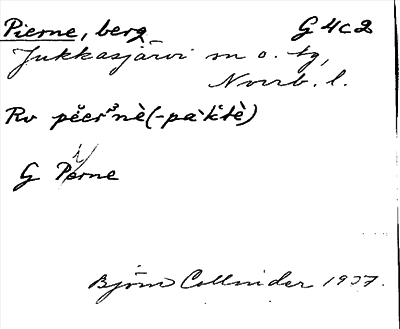 Pierne, berg G 4c2
Jukkasjärvi sn o. tg,
Norrb. l.
Rv pĕcr³nè(-pàktè)
G Pierne
Björn Collinder 1937.